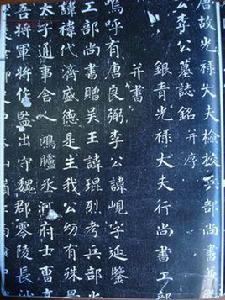 唐故光祿大夫檢校兵部尚書
公李公墓誌銘 并序
銀青光祿大夫行尚書工部
并書
嗚呼有唐良弼李公諱峴字延鑒
工部尚書贈吳王諱琨烈考兵部尚
諱禕代濟盛德是生我公幼有殊
太子通事舍人鴻臚丞河府士曹
吾將軍將作監出守魏郡零陵長沙